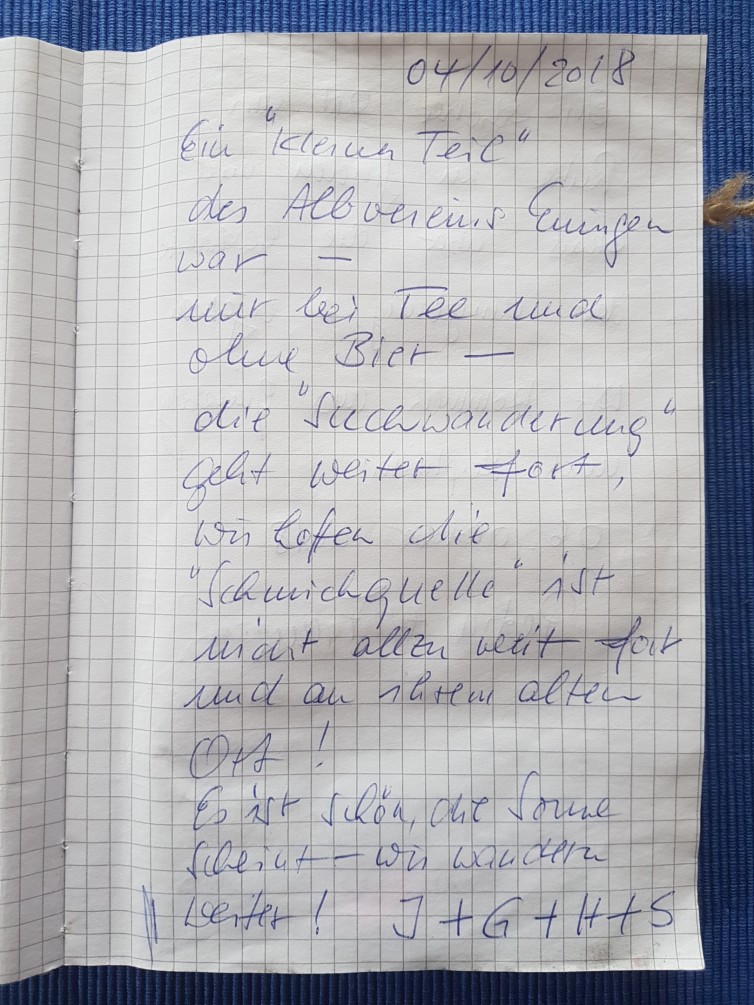 04/10/2018
Ein "kleiner Teil"
des Albvereins Eningen
war —
nur bei Tee und
ohne Bier —
die "Suchwanderung"
geht weiter fort,
wir hoffen die
"Schmichquelle" ist
nicht allzu weit fort
und an ihrem alten
Ort !
Es ist schön, die Sonne
scheint – wir wandern
weiter ! J + G + H + S